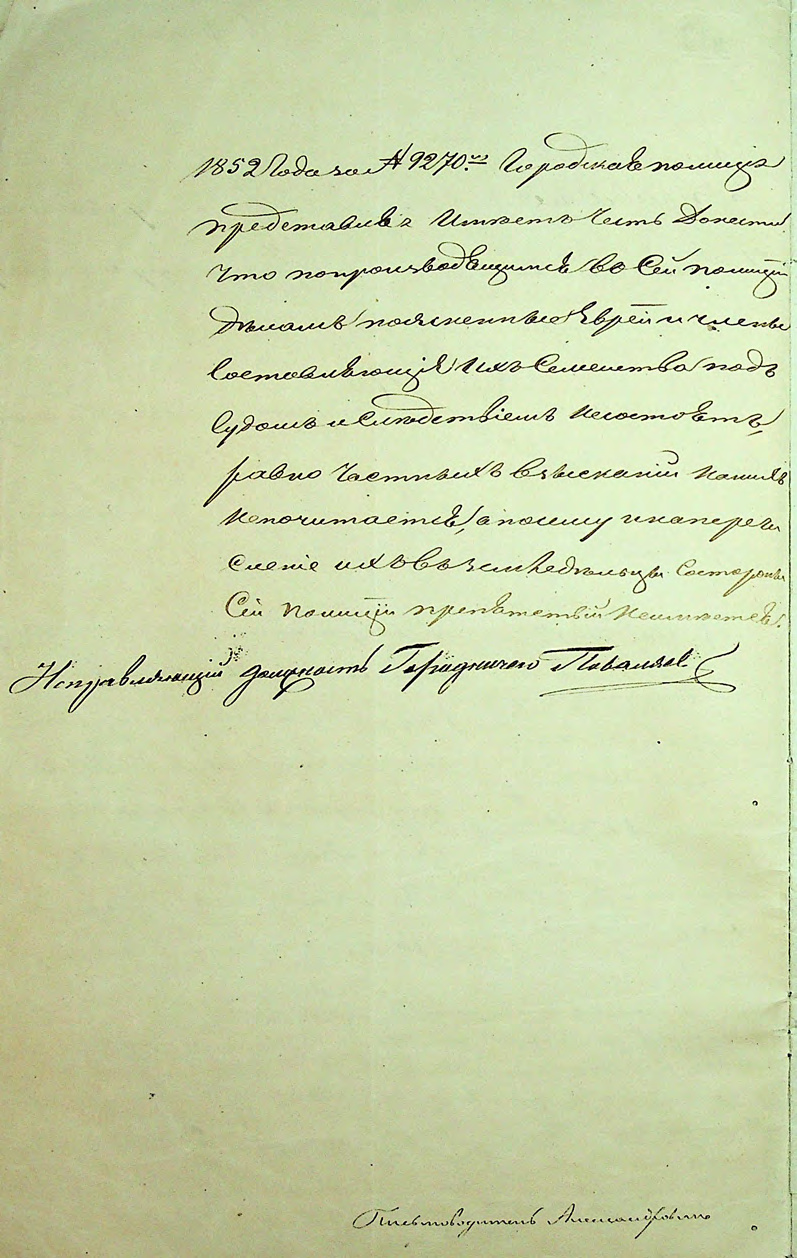 1852 Года за № 9270.мъ Городская полиція
представляя Имѣетъ Честь Донести
что по производящимся въ Сей полиціи
дѣламъ поясненные Евреи и члены
Составляющіе Ихъ Семейства подъ
Судомъ и Слѣдствіемъ несостоятъ,
равно частныхъ взысканій на нихъ
непочитается, а посему и на перечи
сленіе ихъ въ земледѣльцы Состороны
Сей полиціи препятствій неимѣется.
Исправляющій должность Городничаго
Письмоводитель Александровичъ